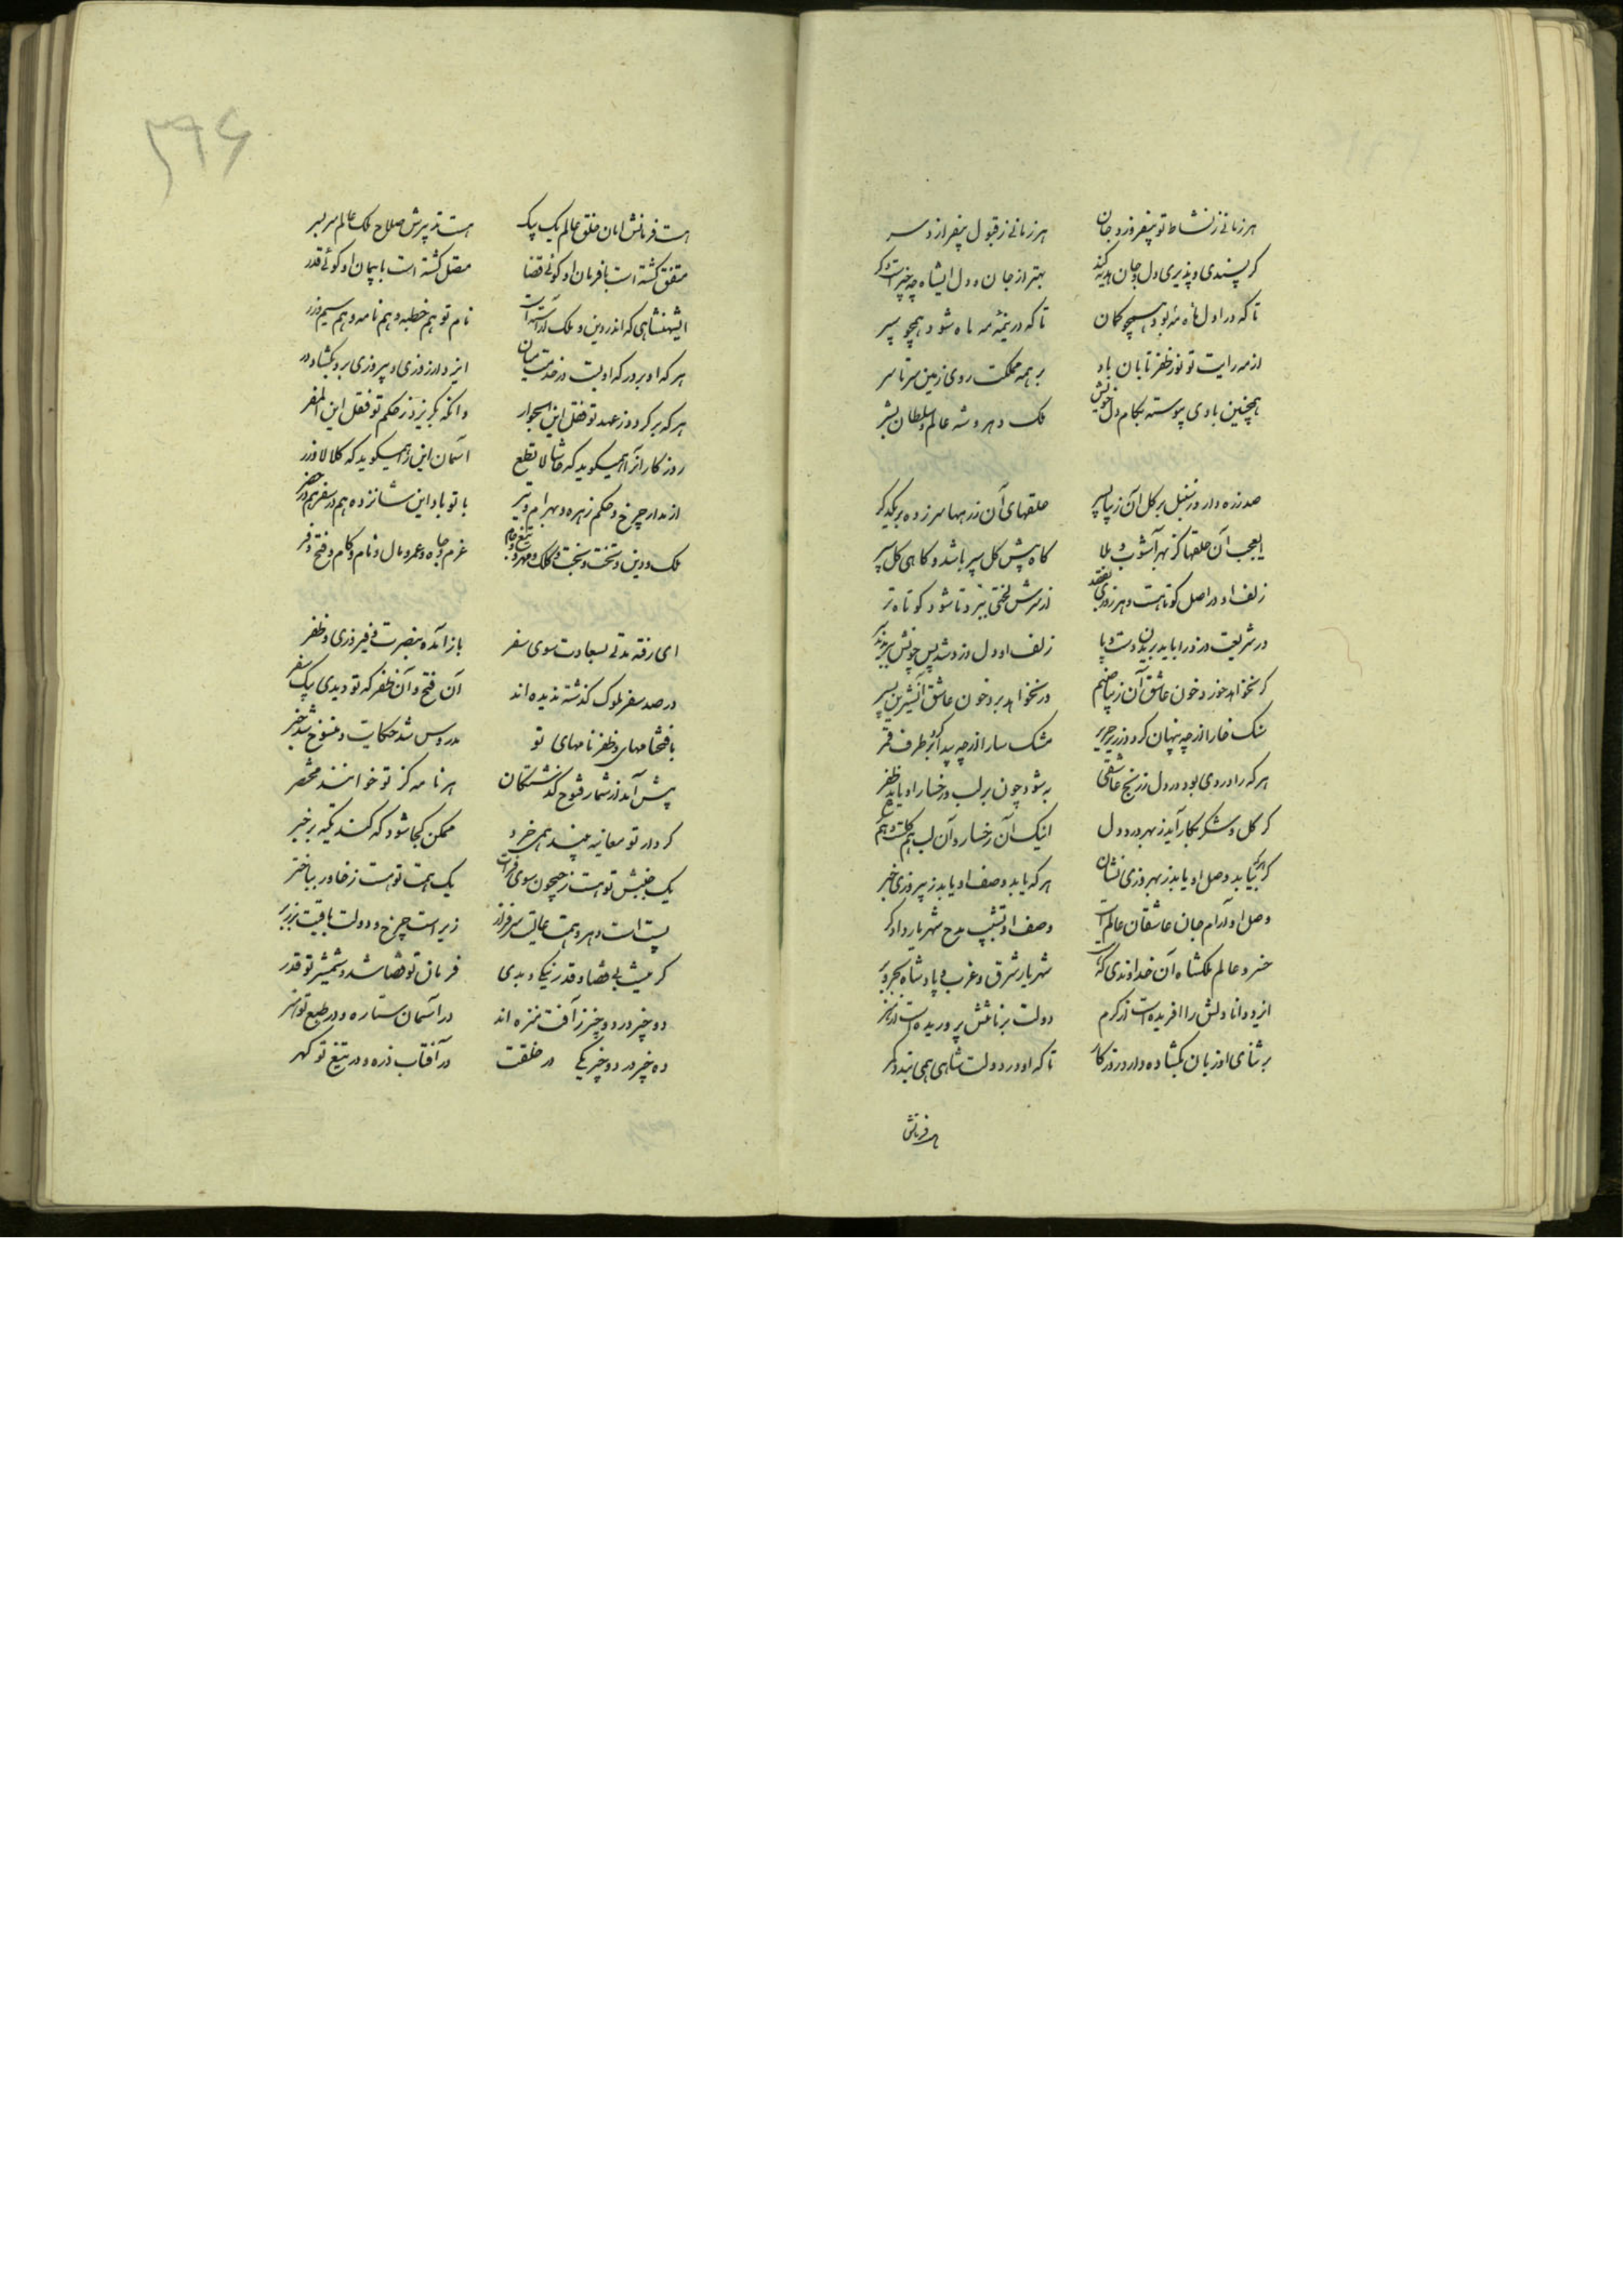 هر زمانی ز نشاط تو بیفروزد جان هر زمانی ز قبول تو بیفرازد سر
گر پسندی و پذیری دل و جان هدیه کند بهتر از جان و دل ایشاه چه چیزست دگر
تا که در اول مه ماه بود همچو کمان تا که در نیمه مه ماه شود همچو سپر
از مه رایت تو نور ظفر تابان باد بر همه مملکت روی زمین سرتاسر
همچنین بادی پیوسته بکام دل خویش ملک دهر و شه عالم و سلطان بشر
صد زره دارد ز سنبل بر گل آن زیبا پسر حلقهای آن زرهها سر زده بر یکدگر
ایعجب آن حلقها کز بهر آشوب و بلا گاه پیش گل سپر باشد و گاهی گل سپر
زلف او در اصل کوتاهست و هر روزی بقصد از سرش لختی ببرد تا شود کوتاه تر
در شریعت دزد را باید بریدن دست و پا زلف او دل دزد شد پس چونش ببریدند سر
گر نخواهد خورد خون عاشق آن زیبا صنم ور نخواهد برد خون عاشق آن شیرین پسر
سنگ خارا از چه پنهان کرد در زیر حریر مشک سارا از چه پیدا کرد بر طرف قمر
هر که را دردی بود در دل ز رنج عاشقی به شود چون بر لب و رخسار او یابد ظفر
گر گل و شکر بکار آید ز بهر درد دل اینک آن رخسار و آن لب هم گلست و هم شکر
هر که یابد وصل او یابد ز بهروزی نشان هر که یابد وصف او یابد ز پیروزی خبر
وصل او آرام جان عاشقان عالم است وصف او تشبیب مدح شهریار دادگر
خسرو عالم ملکشاه آن خداوندی که هست شهریار شرق و غرب و پادشاه بحر و بر
ایزد دانا دلش را آفریده است از کرم دولت برنا تنش پروریده است از هنر
بر ثنای او زبان بگشاده دارد روزگار تا که او در دولت شاهی همی بندد کمر
هست فرمانش
۳۹۶
هست فرمانش امان خلق عالم یک بیک هست تدبیرش صلاح ملک عالم سربسر
متفق گشته است با فرمان او گوئی قضا متصل گشته است با پیمان او گوئی قدر
ای شهنشاهی که اندر دین و ملک آراسته است نام تو هم خطبه و هم نامه و هم سیم و زر
هر که او بر درگه او بست در خدمت میان ایزد از روزی و پیروزی برو بگشاد در
هر که برگردد ز عهد تو فقل این الجوار وانکه بگریزد ز حکم تو فقل این المفر
روزگار آنرا همیگوید که حاشا لا تطع آسمان این را همیگوید که کلا لا وزر
از مدار چرخ و حکم زهره و بهرام و تیر با تو باد این شانزده هم در سفر هم در حضر
ملک و دین و تخت و بخت و کلک و مهر و تیغ و جام عزم و جاه و عمر و مال و نام و کام و فتح و فر
ای رفته مدتی بسعادت سوی سفر باز آمده بنصرت و فیروزی و ظفر
در صد سفر ملوک گذشته ندیده اند آن فتح و آن ظفر که تو دیدی بیک سفر
با فتحنامهای و ظفرنامهای تو مدروس شد حکایت و منسوخ شد خبر
پیش آمد از شمار فتوح گذشتگان هر نامه کز تو خوانند مختصر
کردار تو معاینه بیند همی خرد ممکن کجا شود که کند تکیه بر خبر
یک جنبش تو هست ز جیحون سوی فرات یک همت تو هست ز خاور بباختر
پست است دهر و همت عالیت سرفراز زیر است چرخ و دولت باقیت بر زبر
گر نیست بی قضا و قدر نیک و بدی فرمان تو قضا شد و شمشیر تو قدر
دو چیز در دو چیز ز آفت منزه اند در آسمان ستاره و در طبع تو هنر
ده چیز در دو چیز یکی در خلقت در آفتاب ذره و در تیغ تو گهر